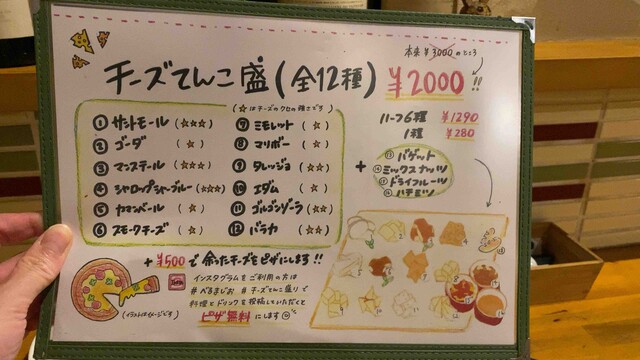 本来¥3000のところ
チーズてんこ盛(全12種) ¥2000!!
(☆はチーズのクセの強さです)
① サントモール (☆☆☆)
② ゴーダ (☆)
③ マンステール (☆☆☆)
④ シャロップシャーブルー (☆☆☆)
⑤ カマンベール (☆)
⑥ スモークチーズ (☆)
⑦ ミモレット (☆)
⑧ マリボー (☆)
⑨ タレッジョ (☆☆)
⑩ エダム (☆)
⑪ ゴルゴンゾーラ (☆☆)
⑫ バラカ (☆☆)
ハーフ6種 ¥1290
1種 ¥280
+
⑬ バゲット
⑭ ミックスナッツ
⑮ ドライフルーツ
⑯ ハチミツ
+¥500で余ったチーズをピザにします!!
インスタグラムをご利用の方は
#べるまじお #チーズてんこ盛りで
料理とドリンクを投稿していただくと
ピザ無料にします
(イラストはイメージです)